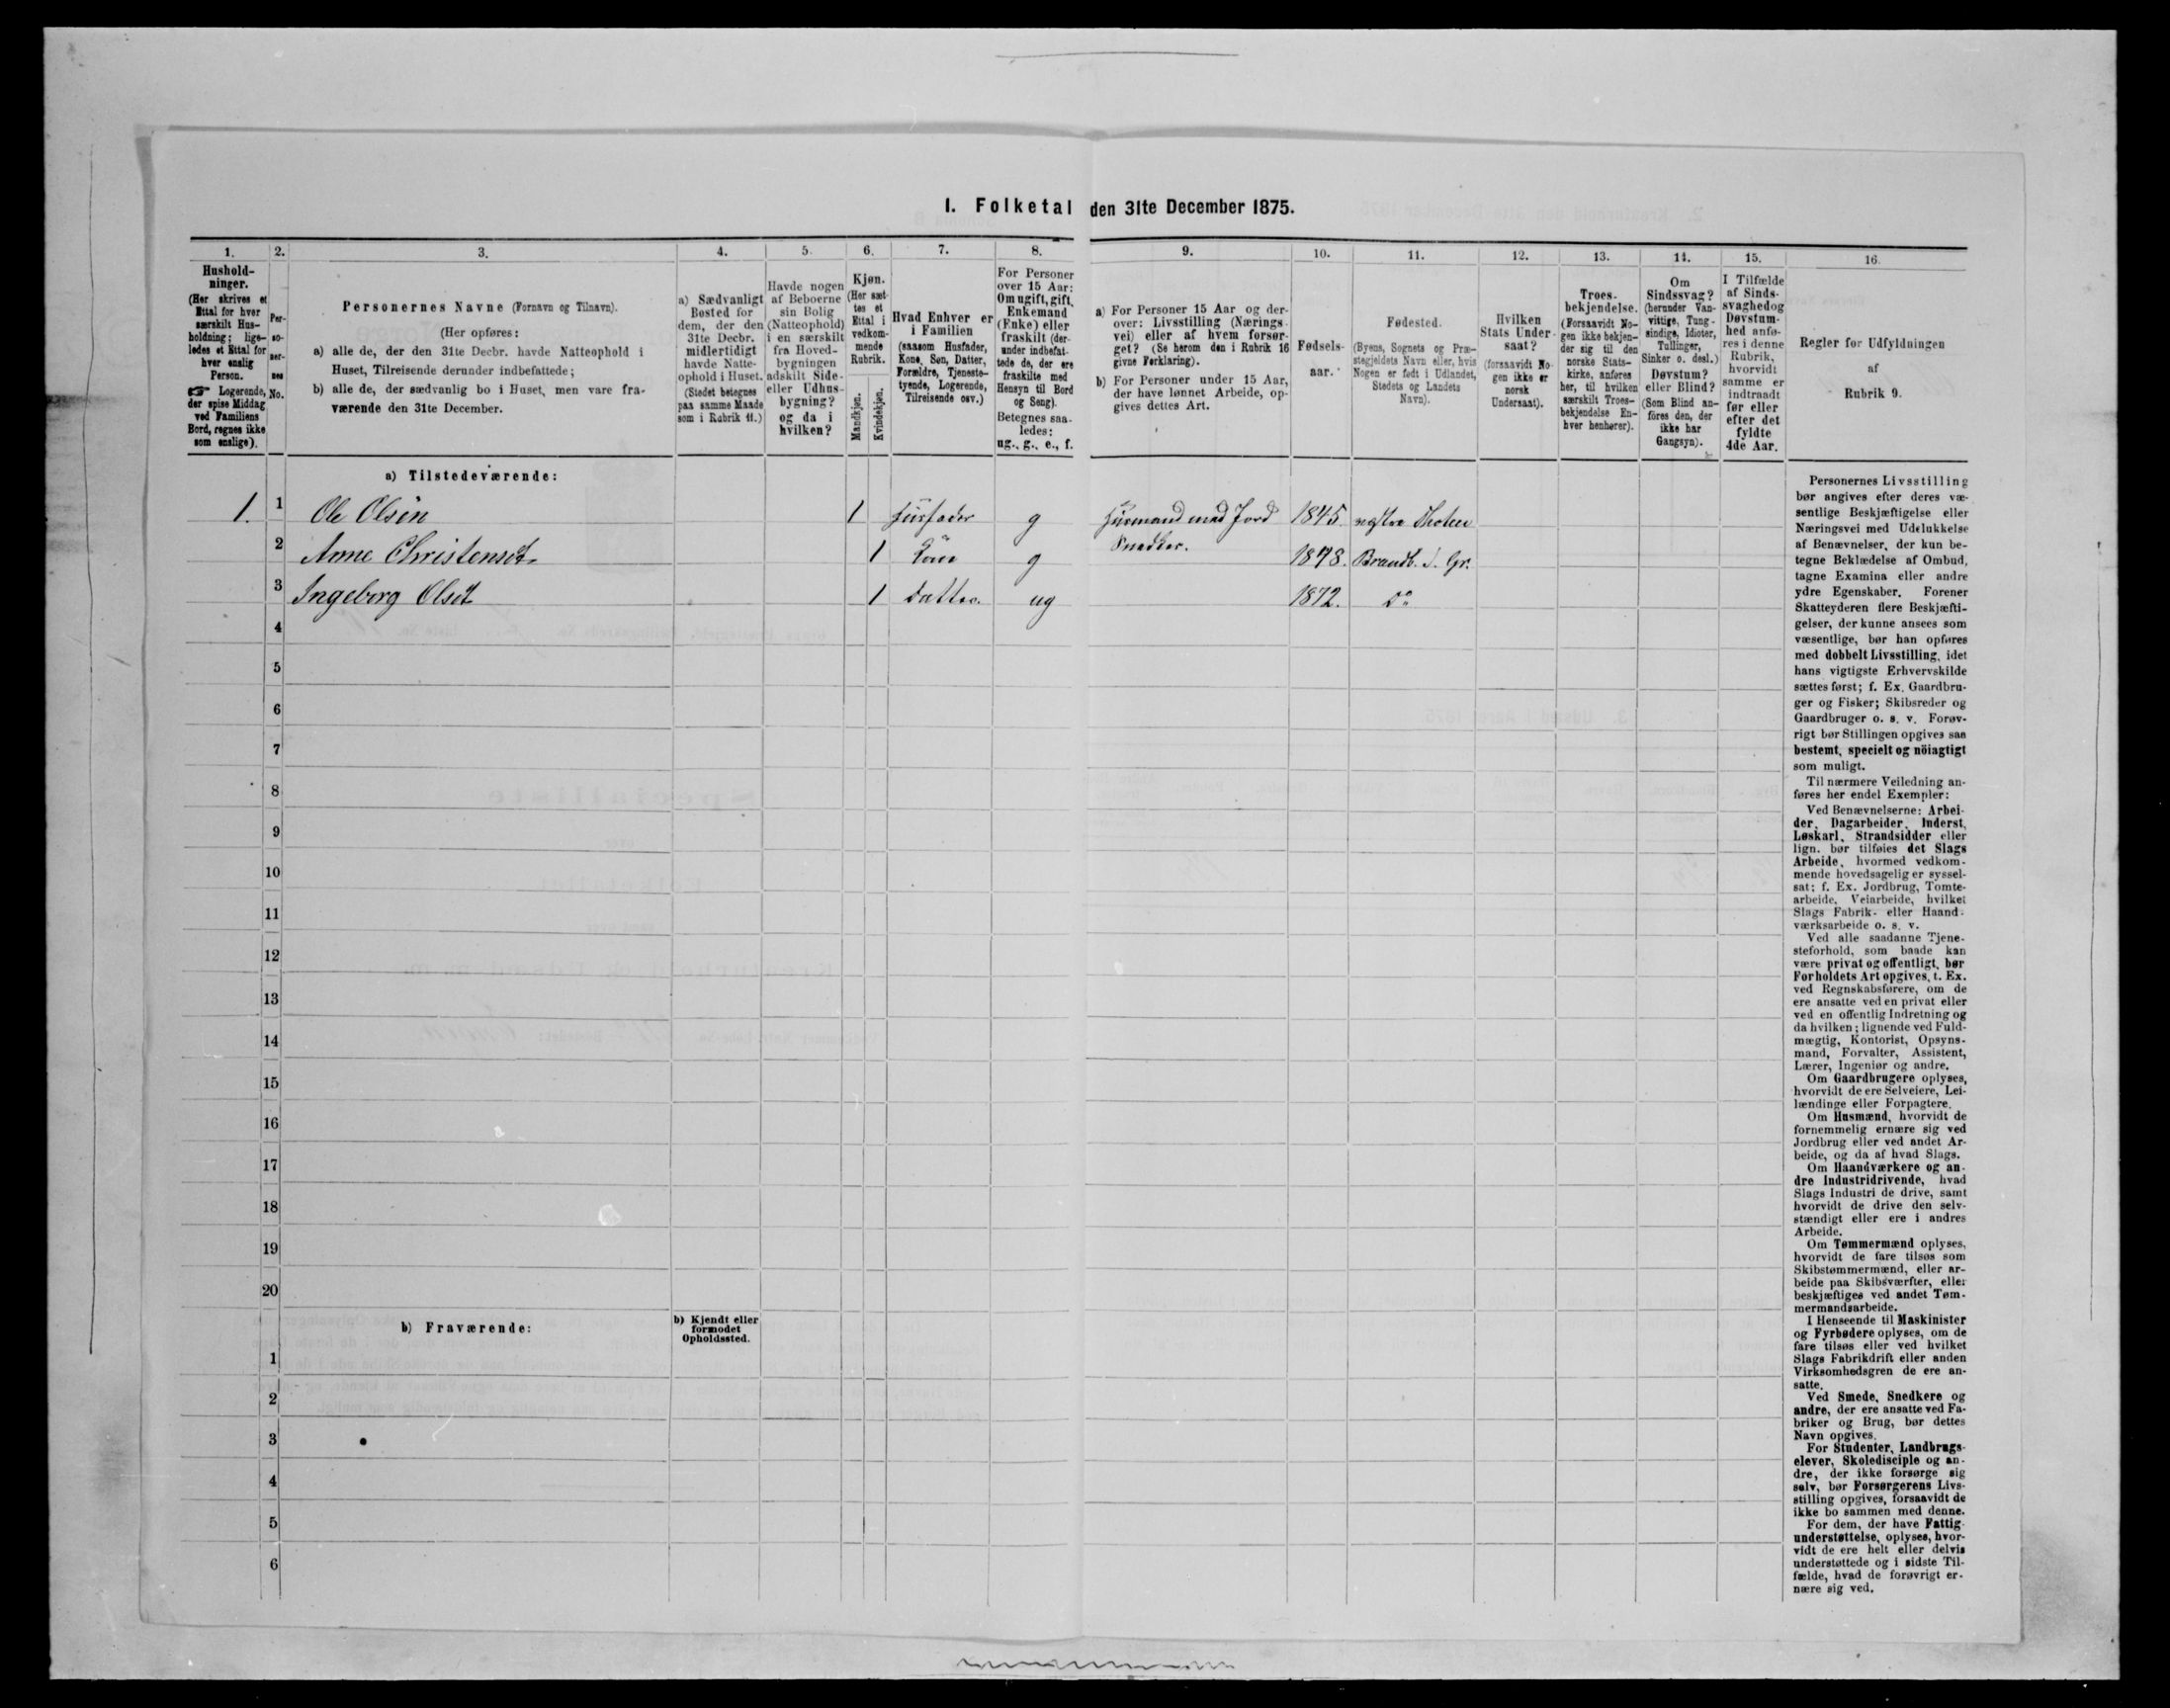 I. Folketal den 31te December 1875.
1.
2.
3.
4.
5.
6.
7.
8.
9.
10.
11.
12.
13.
14.
15.
16.
Hushold-
ninger.
(Her skrives et
Ettal for hver
særskilt Hus-
holdning; lige-
ledes et Ettal for
hver enslig
Person.
☞ Logerende,
der spise Middag
ved Familiens
Bord, regnes ikke
som enslige).
Per-
so-
ner-
nes
No.
Personernes Navne (Fornavn og Tilnavn).
(Her opføres:
a) alle de, der den 31te Decbr. havde Natteophold i
Huset, Tilreisende derunder indbefattede;
b) alle de, der sædvanlig bo i Huset, men vare fra-
værende den 31te December.
a) Sædvanligt
Bosted for
dem, der den
31te Decbr.
midlertidigt
havde Natte-
ophold i Huset.
(Stedet betegnes
paa samme Maade
som i Rubrik 11.)
Havde nogen
af Beboerne
sin Bolig
(Natteophold)
i en særskilt
fra Hoved-
bygningen
adskilt Side-
eller Udhus-
bygning?
og da i
hvilken?
Kjøn.
(Her sæt-
tes et
Ettal i
vedkom-
mende
Rubrik.
Mandkjøn.
Kvindekjøn.
Hvad Enhver er
i Familien
(saasom Husfader,
Kone, Søn, Datter,
Forældre, Tjeneste-
tyende, Logerende,
Tilreisende osv.)
For Personer
over 15 Aar:
Om ugift, gift,
Enkemand
(Enke) eller
fraskilt (der-
under indbefat-
tede de, der ere
fraskilte med
Hensyn til Bord
og Seng).
Betegnes saa-
ledes:
ug., g., e., f.
a) For Personer 15 Aar og der-
over: Livsstilling (Nærings-
vei) eller af hvem forsør-
get? (Se herom den i Rubrik 16
givne Forklaring).
b) For Personer under 15 Aar,
der have lønnet Arbeide, op-
gives dettes Art.
Fødsels-
aar.
Fødested.
(Byens, Sognets og Præ-
stegjeldets Navn eller, hvis
Nogen er født i Udlandet,
Stedets og Landets
Navn).
Hvilken
Stats Under-
saat?
(forsaavidt No-
gen ikke er
norsk
Undersaat).
Troes-
bekjendelse.
(Forsaavidt No-
gen ikke bekjen-
der sig til den
norske Stats-
kirke, anføres
her, til hvilken
særskilt Troes-
bekjendelse En-
hver henhører).
Om
Sindssvag?
(herunder Van-
vittige, Tung-
sindige, Idioter,
Tullinger,
Sinker o. desl.)
Døvstum?
eller Blind?
(Som Blind an-
føres den, der
ikke har
Gangsyn).
I Tilfælde
af Sinds-
svaghed og
Døvstum-
hed anfø-
res i denne
Rubrik,
hvorvidt
samme er
indtraadt
før eller
efter det
fyldte
4de Aar.
Regler for Udfyldningen
af
Rubrik 9.
a) Tilstedeværende:
1. 1 Ole Olsen 1 Husfader g Husmand med Jord 1845. vestre Thoten
Snedker.
2 Anne Christensdt. 1 Kone g 1848. Brandb. S. Gr.
3 Ingeborg Olsdt 1 Datter. ug 1872. Do
4
5
6
7
8
9
10
11
12
13
14
15
16
17
18
19
20
b) Fraværende:
b) Kjendt eller
formodet
Opholdssted.
1
2
3
4
5
6
Personernes Livsstilling
bør angives efter deres væ-
sentlige Beskjæftigelse eller
Næringsvei med Udelukkelse
af Benævnelser, der kun be-
tegne Beklædelse af Ombud,
tagne Examina eller andre
ydre Egenskaber. Forener
Skatteyderen flere Beskjæfti-
gelser, der kunne ansees som
væsentlige, bør han opføres
med dobbelt Livsstilling, idet
hans vigtigste Erhvervskilde
sættes først; f. Ex. Gaardbru-
ger og Fisker; Skibsreder og
Gaardbruger o. s. v. Forøv-
rigt bør Stillingen opgives saa
bestemt, specielt og nöiagtigt
som muligt.
Til nærmere Veiledning an-
føres her endel Exempler:
Ved Benævnelserne: Arbei-
der, Dagarbeider, Inderst,
Løskarl, Strandsidder eller
lign. bør tilføies det Slags
Arbeide, hvormed vedkom-
mende hovedsagelig er syssel-
sat; f. Ex. Jordbrug, Tomte-
arbeide, Veiarbeide, hvilket
Slags Fabrik- eller Haand-
værksarbeide o. s. v.
Ved alle saadanne Tjene-
steforhold, som baade kan
være privat og offentligt, bør
Forholdets Art opgives, t. Ex.
ved Regnskabsførere, om de
ere ansatte ved en privat eller
ved en offentlig Indretning og
da hvilken; lignende ved Fuld-
mægtig, Kontorist, Opsyns-
mand, Forvalter, Assistent,
Lærer, Ingeniør og andre.
Om Gaardbrugere oplyses,
hvorvidt de ere Selveiere, Lei-
lændinge eller Forpagtere.
Om Husmænd, hvorvidt de
fornemmelig ernære sig ved
Jordbrug eller ved andet Ar-
beide, og da af hvad Slags.
Om Haandværkere og an-
dre Industridrivende, hvad
Slags Industri de drive, samt
hvorvidt de drive den selv-
stændigt eller ere i andres
Arbeide.
Om Tømmermænd oplyses,
hvorvidt de fare tilsøs som
Skibstømmermænd, eller ar-
beide paa Skibsværfter, eller
beskjæftiges ved andet Tøm-
mermandsarbeide.
I Henseende til Maskinister
og Fyrbødere oplyses, om de
fare tilsøs eller ved hvilket
Slags Fabrikdrift eller anden
Virksomhedsgren de ere an-
satte.
Ved Smede, Snedkere og
andre, der ere ansatte ved Fa-
briker og Brug, bør dettes
Navn opgives.
For Studenter, Landbrugs-
elever, Skoledisciple og an-
dre, der ikke forsørge sig
selv, bør Forsørgerens Livs-
stilling opgives, forsaavidt de
ikke bo sammen med denne.
For dem, der have Fattig-
understøttelse, oplyses, hvor-
vidt de ere helt eller delvis
understøttede og i sidste Til-
fælde, hvad de forøvrigt er-
nære sig ved.